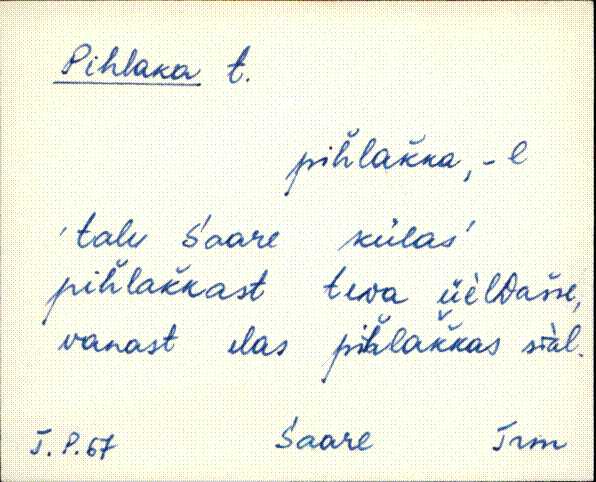 Pihlaka t.
pihlăkka, -l
'talu Saare külas'
pihlăkkast tuva üèlDasse,
vanast elas pihlăkkas siàl.
J.P.67 Saare Trm